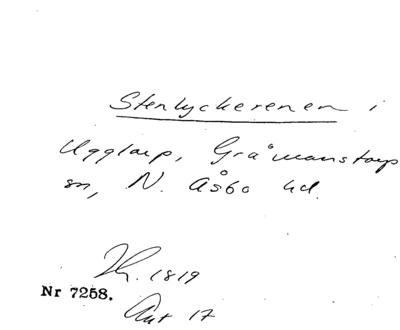 Stenlyckerenen i
Ugglarp, Gråmanstorp
sn, N. Åsbo hd.
Lh. 1819
Nr 7258.
Akt 17